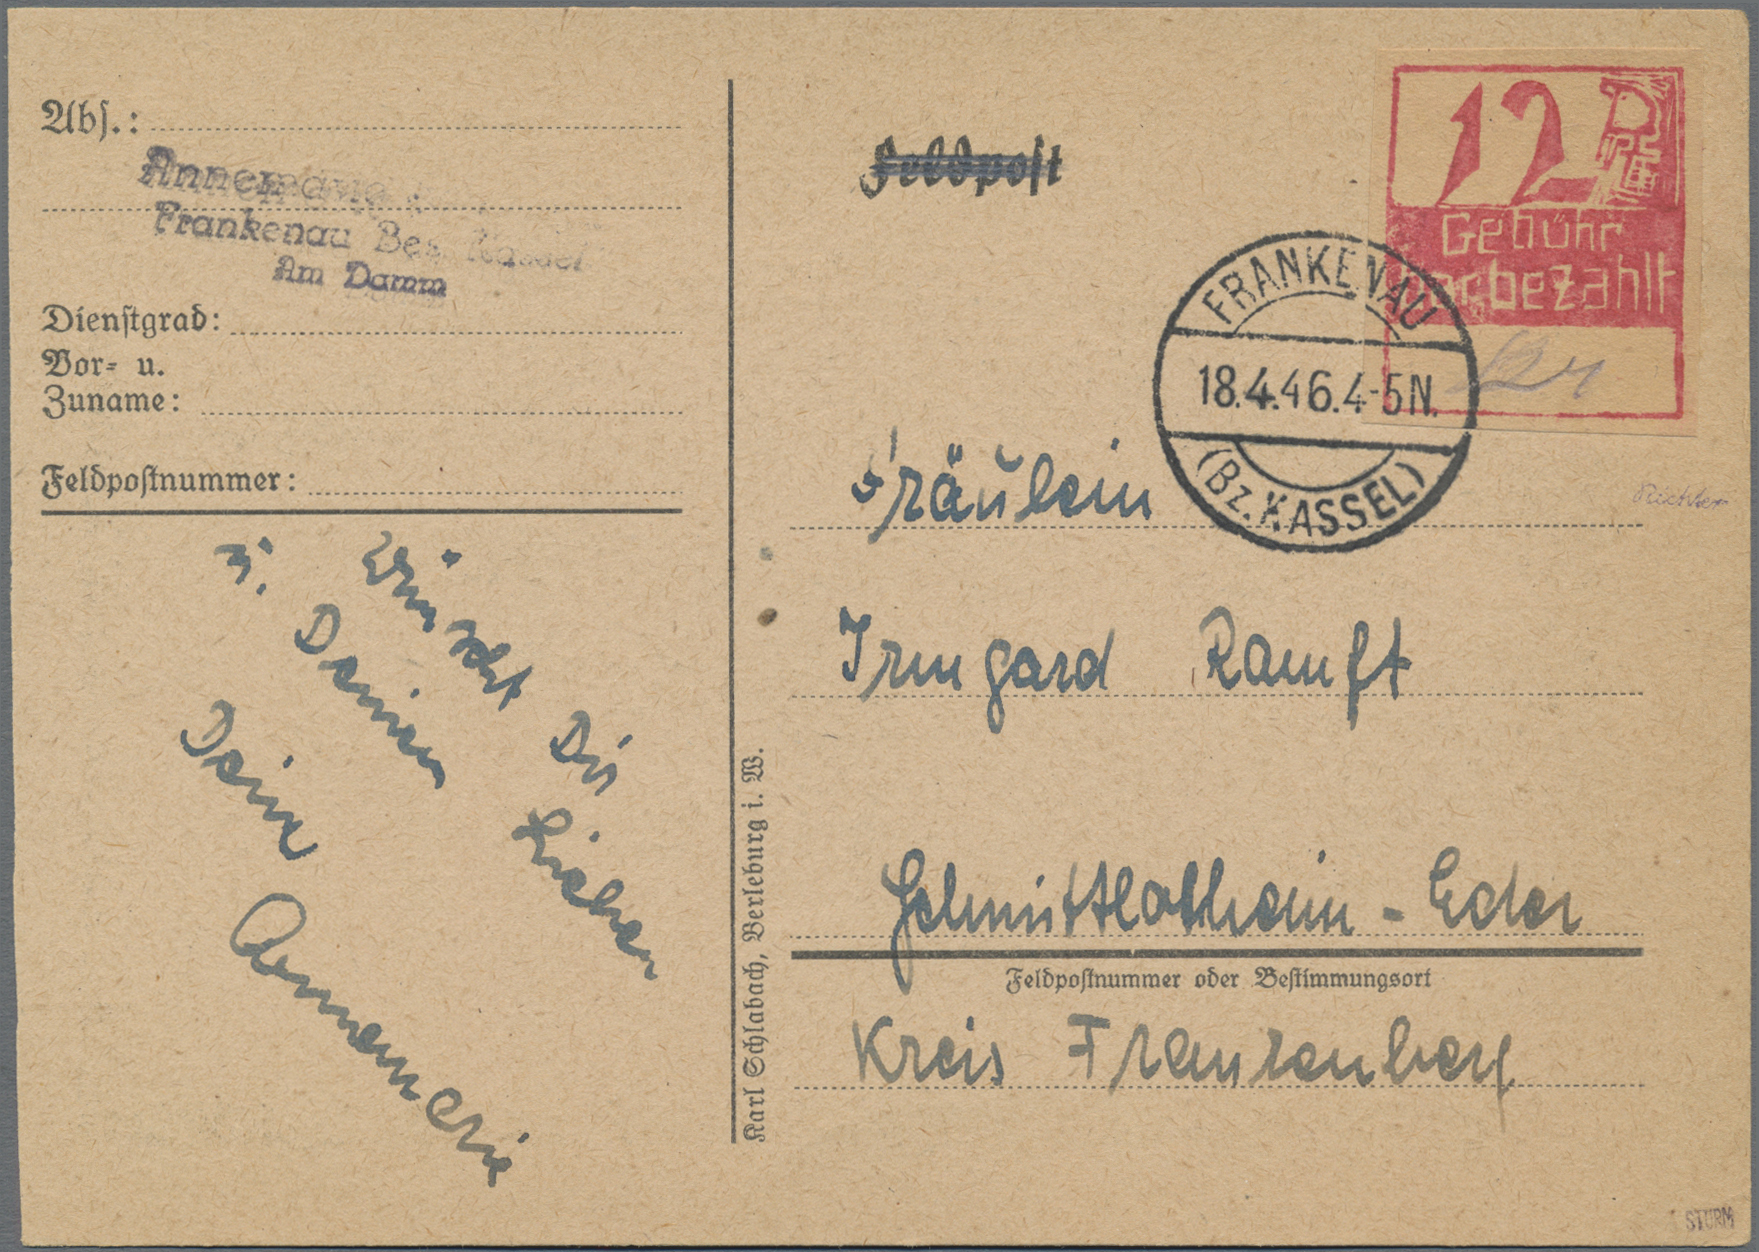 Abs.:
Annemarie
Frankenau Bez. Kassel
Am Damm
Dienstgrad:
Vor- u.
Zuname:
Feldpostnummer:
wünscht Dir
u. Deinen Lieben
Deine
Annemarie
Karl Schlabach, Berleburg i. W.
Feldpost
12
Gebühr
vorbezahlt
FRANKENAU
18.4.46.4-5N.
(Bz. KASSEL)
Richter
Fräulein
Irmgard Ramft
Schmittlotheim - Eder
Feldpostnummer oder Bestimmungsort
Kreis Frankenberg
STURM